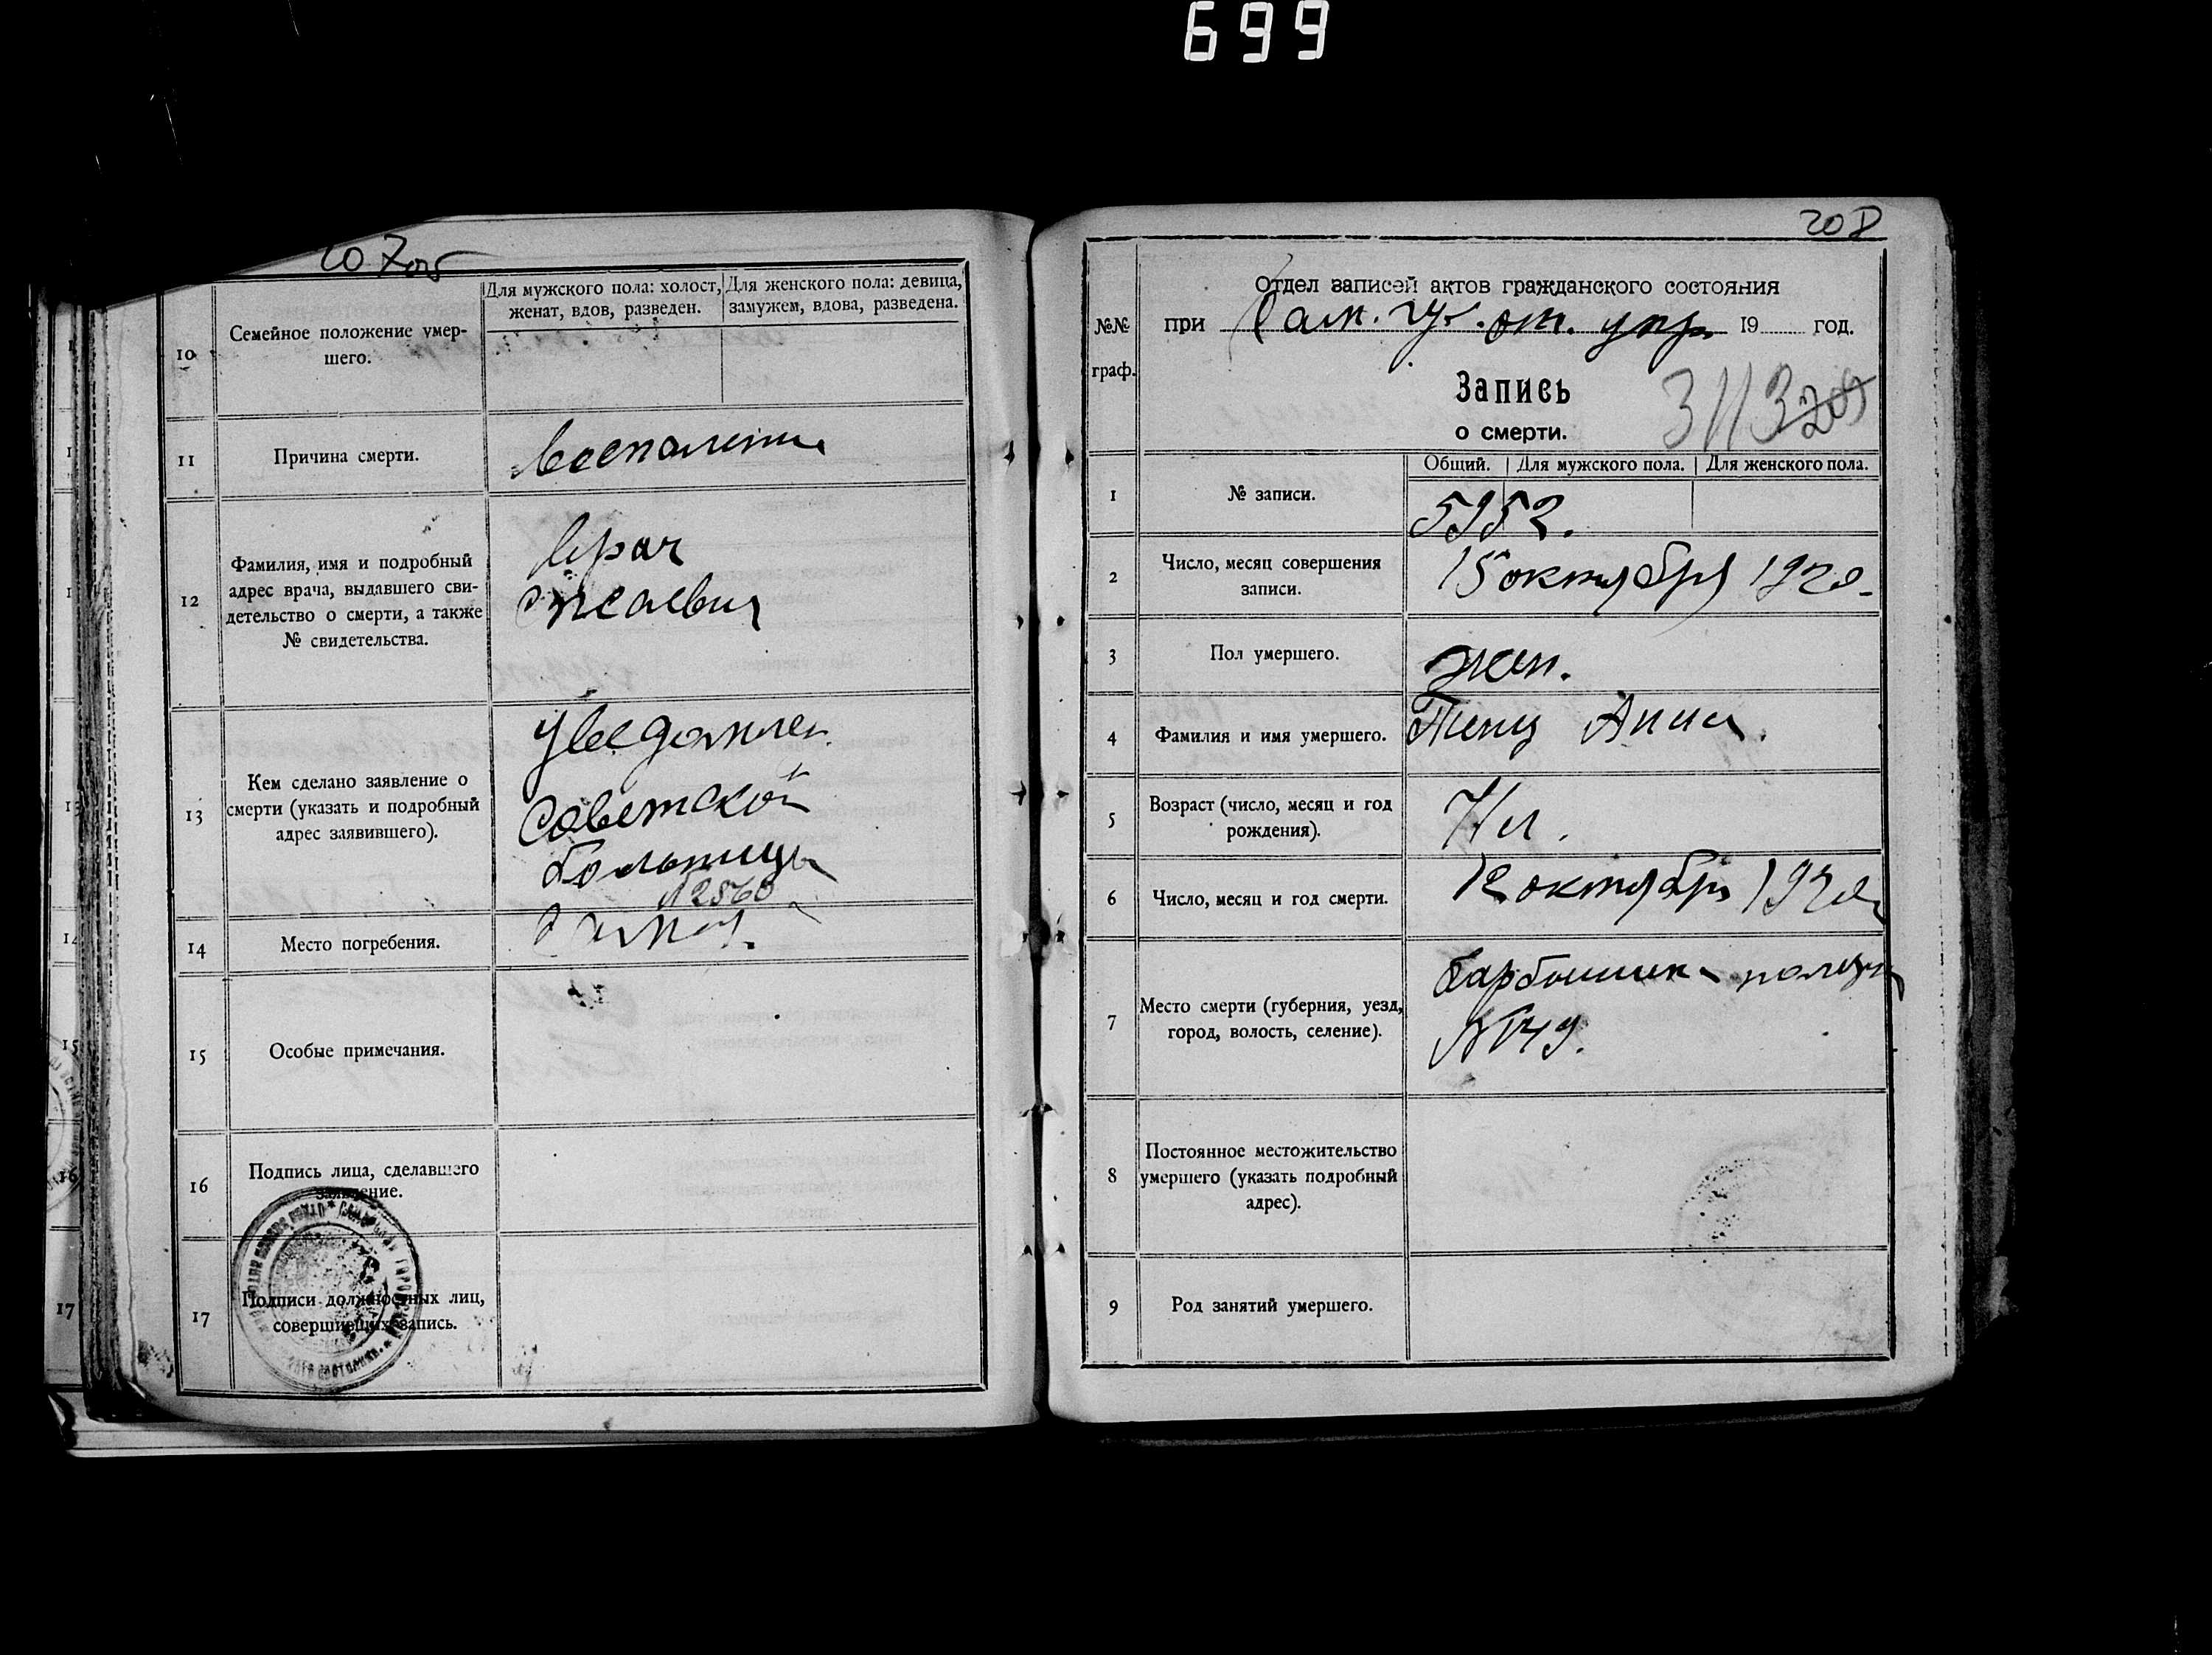 699
207об
10
Семейное положение умер-
шего.
Для мужского пола: холост,
женат, вдов, разведен.
Для женского пола: девица,
замужем, вдова, разведена.
11
Причина смерти.
Воспаление
12
Фамилия, имя и подробный
адрес врача, выдавшего сви-
детельство о смерти, а также
№ свидетельства.
Врач
13
Кем сделано заявление о
смерти (указать и подробный
адрес заявившего).
Уведомлен.
Советской
больницы
14
Место погребения.
15
Особые примечания.
16
Подпись лица, сделавшего
заявление.
17
Подписи должностных лиц,
совершивших запись.
208
№№
граф.
Отдел записей актов гражданского состояния
при Сам. губ. от. упр. 19 год.
Запись
о смерти.
3113
Общий. Для мужского пола. Для женского пола.
1
№ записи.
5952.
2
Число, месяц совершения
записи.
15 октября 1920.
3
Пол умершего.
жен.
4
Фамилия и имя умершего.
Анна.
5
Возраст (число, месяц и год
рождения).
6
Число, месяц и год смерти.
12 октября 1920
7
Место смерти (губерния, уезд,
город, волость, селение).
8
Постоянное местожительство
умершего (указать подробный
адрес).
9
Род занятий умершего.